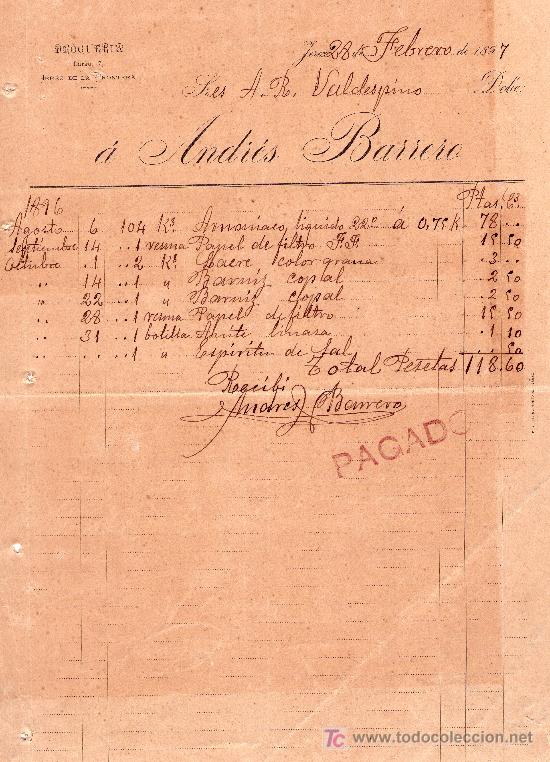 DROGUERIA
JEREZ DE LA FRONTERA
Jerez 28 de Febrero de 1897
Sres A. R. Valdespino Debe
á Andrés Barrero
1896 Ptas. Cs
Agosto 6 104 Ks Amoniaco liquido 22º á 0,75 K 78 ..
Septiembre 14 .. 1 resma Papel de filtro F.F. 15 50
Octubre . 1 .. 2 Ks Lacre color grana . 3 ..
" 14 .. 1 " Barniz copal . 2 50
" 22 .. 1 " Barniz copal . 2 50
.. 28 .. 1 resma Papel de filtro 15 50
.. 31 .. 1 botella Aceite linaza . 1 10
.. .. 1 " Espiritu de Sal .. 50
Total Pesetas 118.60
Recibi
Andres Barrero
PAGADO
TC todocoleccion
www.todocoleccion.net